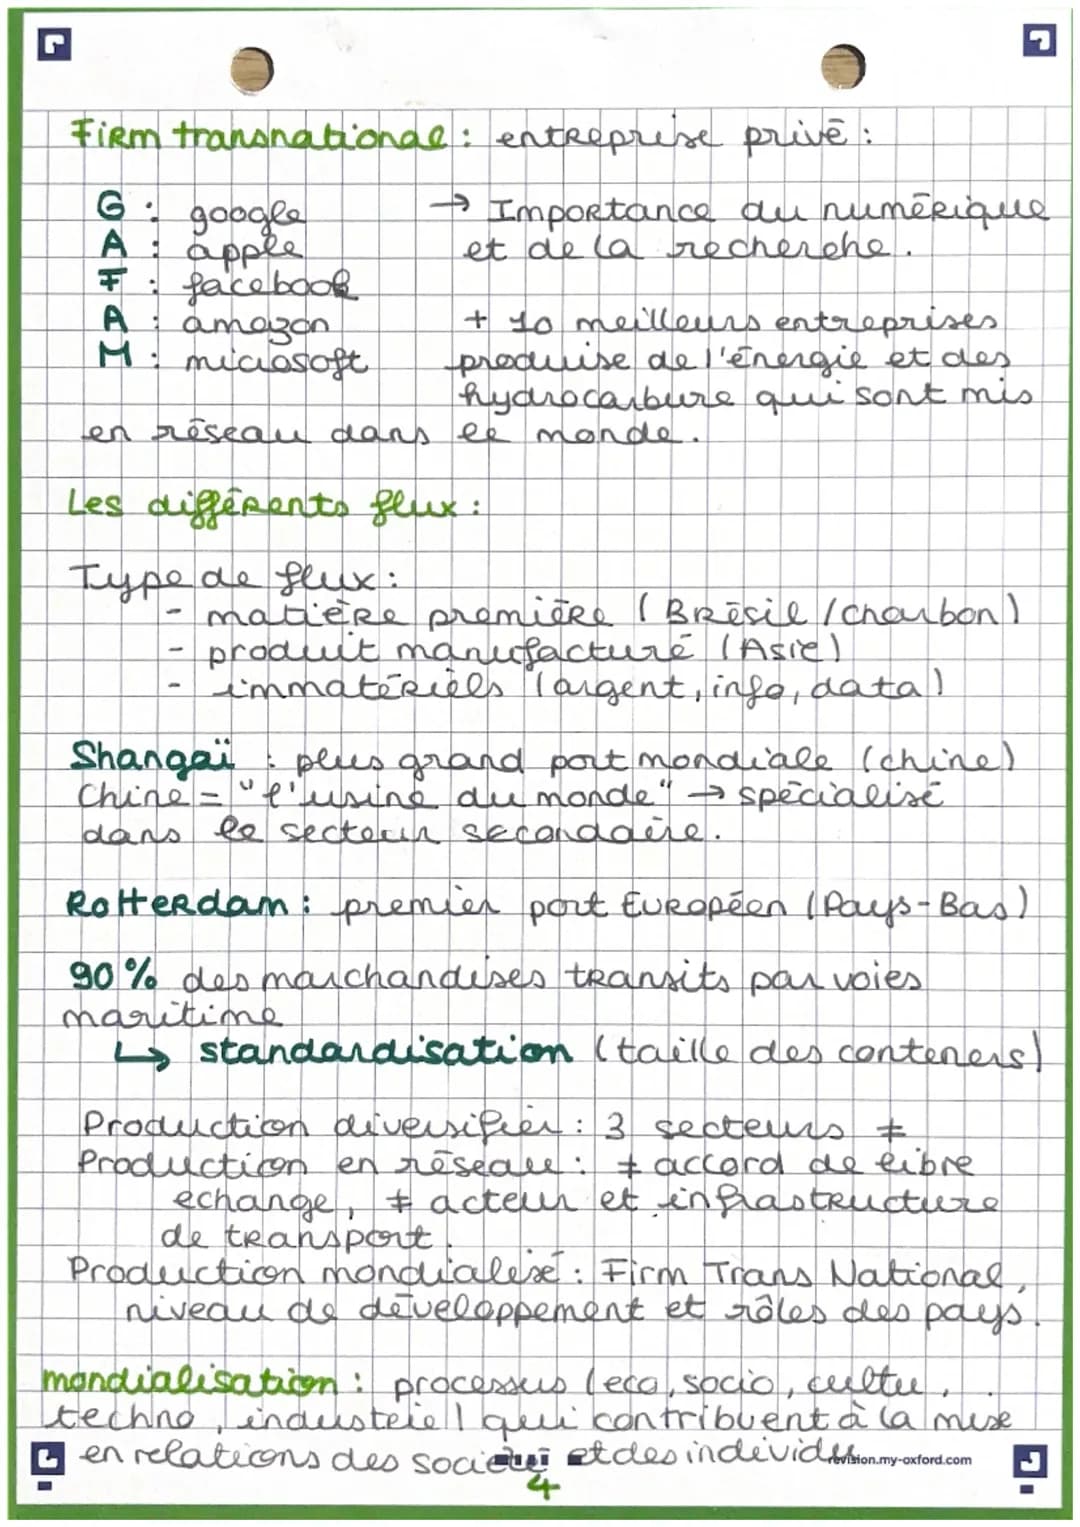 Firm transnational : entreprise privé :
G : google → Importance du numérique
A : apple et de la recherche.
F : facebook
A : amazon + 10 meilleurs entreprises
M : microsoft produise de l'énergie et des
hydrocarbure qui sont mis
en réseau dans le monde.
Les différents flux :
Type de flux :
- matière première (Brésil / charbon)
- produit manufacturé (Asie)
- immatériels (argent, info, data)
Shangaï : plus grand port mondiale (chine)
Chine = "l'usine du monde" → spécialisé
dans le secteur secondaire.
Rotterdam : premier port Européen (Pays-Bas)
90% des marchandises transits par voies
maritime
↳ standardisation (taille des conteners)
Production diversifier : 3 secteurs ≠
Production en réseau : ≠ accord de libre
echange, ≠ acteur et infrastructure
de transport.
Production mondialisé : Firm Trans National,
niveau de développement et rôles des pays.
mondialisation : processus (eco, socio, cultu,
techno, industriel) qui contribuent à la mise
en relations des société et des individu
revision.my-oxford.com
4